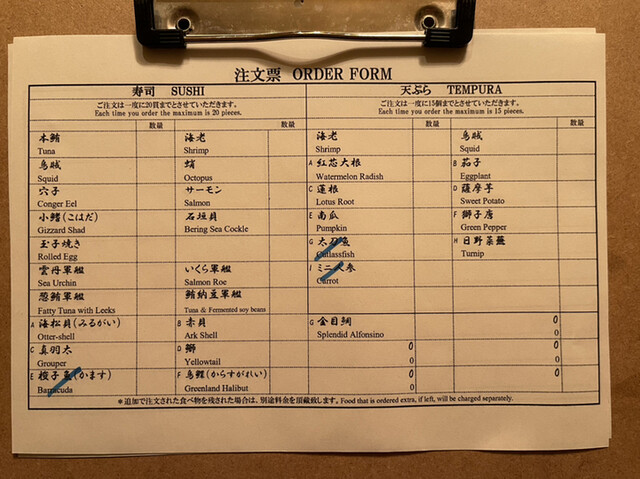 注文票 ORDER FORM
寿司 SUSHI
ご注文は一度に20貫までとさせていただきます。
Each time you order the maximum is 20 pieces.
数量 数量
本鮪 海老
Tuna Shrimp
烏賊 蛸
Squid Octopus
穴子 サーモン
Conger Eel Salmon
小鰭(こはだ) 石垣貝
Gizzard Shad Bering Sea Cockle
玉子焼き
Rolled Egg
雲丹軍艦 いくら軍艦
Sea Urchin Salmon Roe
葱鮪軍艦 鮪納豆軍艦
Fatty Tuna with Leeks Tuna & Fermented soy beans
A 海松貝(みるがい) B 赤貝
Otter-shell Ark Shell
C 真羽太 D 鰤
Grouper Yellowtail
E 梭子魚(かます) F 烏鰈(からすがれい)
Barracuda Greenland Halibut
天ぷら TEMPURA
ご注文は一度に15個までとさせていただきます。
Each time you order the maximum is 15 pieces.
数量 数量
海老 烏賊
Shrimp Squid
A 紅芯大根 B 茄子
Watermelon Radish Eggplant
C 蓮根 D 薩摩芋
Lotus Root Sweet Potato
E 南瓜 F 獅子唐
Pumpkin Green Pepper
G 太刀魚 H 日野菜蕪
Cutlassfish Turnip
I ミニ人参
Carrot
G 金目鯛 0
Splendid Alfonsino 0
0 0
0 0
0 0
0 0
*追加で注文された食べ物を残された場合は、別途料金を頂戴致します。Food that is ordered extra, if left, will be charged separately.